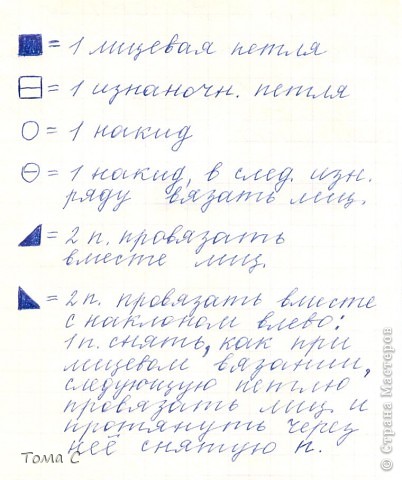 = 1 лицевая петля
= 1 изнаночн. петля
= 1 накид
= 1 накид, в след. изн.
ряду вязать лиц.
= 2 п. провязать
вместе лиц.
= 2 п. провязать вместе
с наклоном влево:
1 п. снять, как при
лицевом вязании,
следующую петлю
провязать лиц. и
протянуть через
неё снятую п.
Тома С
© Страна Мастеров